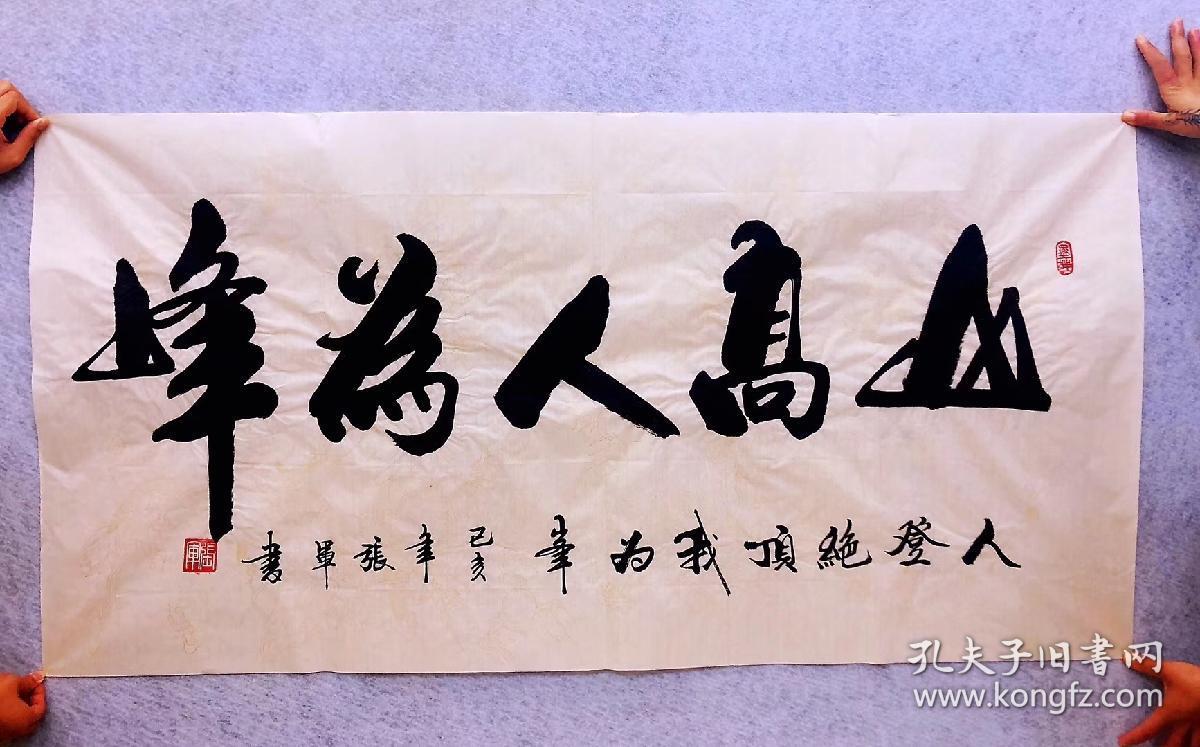 山高人為峰
人登絶頂我为峯己亥年張軍書
張軍
孔夫子旧書网
www.kongfz.com